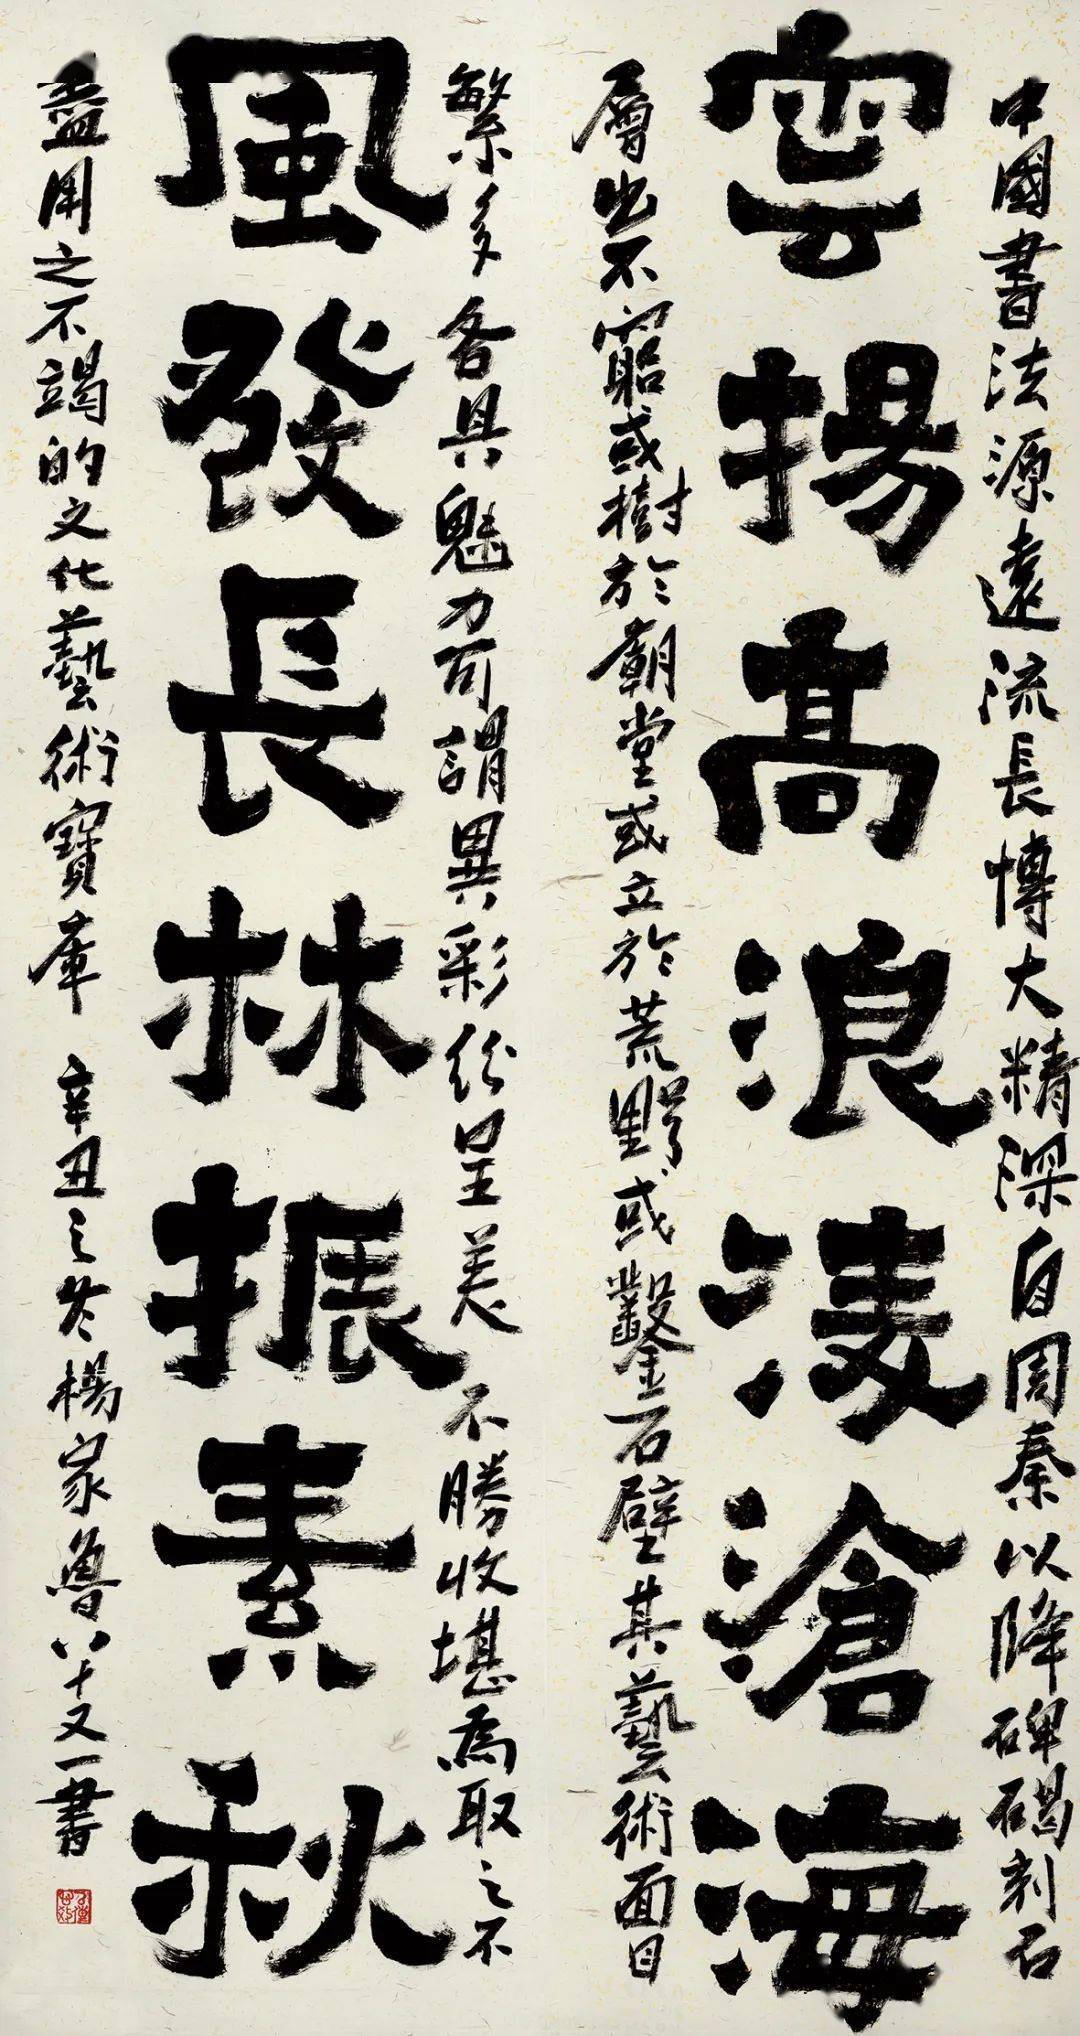 中國書法源遠流長博大精深自周秦以降碑碣刻石
雲揚高浪淩滄海
層出不窮或樹於廟堂或立於荒野或鑿石壁其藝術面目
繁多各具魅力可謂異彩紛呈美不勝收堪為取之不
風發長林振素秋
盡用之不竭的文化藝術寶庫 辛丑之冬楊家魯八十又一書